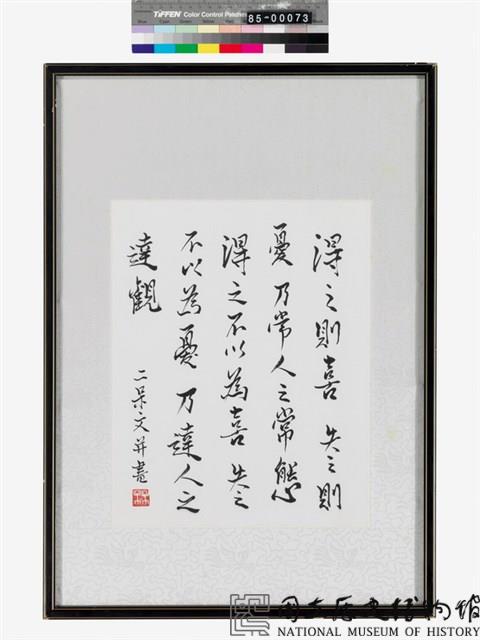 TIFFEN Color Control Patches
85-00073
得之則喜失之則
憂乃常人之常態
得之不以為喜失之
不以為憂乃達人之
達觀
二呆文并書
國立歷史博物館
NATIONAL MUSEUM OF HISTORY